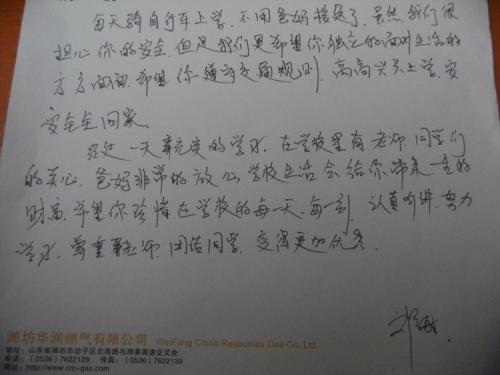 每天骑自行车上学，不用爸妈接送了。虽然我们很
担心你的安全，但是我们更希望你独立的面对生活的
方方面面，希望你遵守交通规则，高高兴兴上学，安
安全全回家。
经过一天充实的学习，在学校里有老师同学们
的关心，爸妈非常的放心，学校生活会给你带来一生的
财富，希望你珍惜在学校的每一天，每一刻，认真听讲，努力
学习，尊重老师，团结同学，变得更加优秀。
潍坊华润燃气有限公司 WeiFang China Resources Gas Co.,Ltd
地址：山东省潍坊市坊子区北海路与潍莱高速交叉处
电话：(0536) 7622129 传真：(0536) 7622139
http://www.crc-gas.com